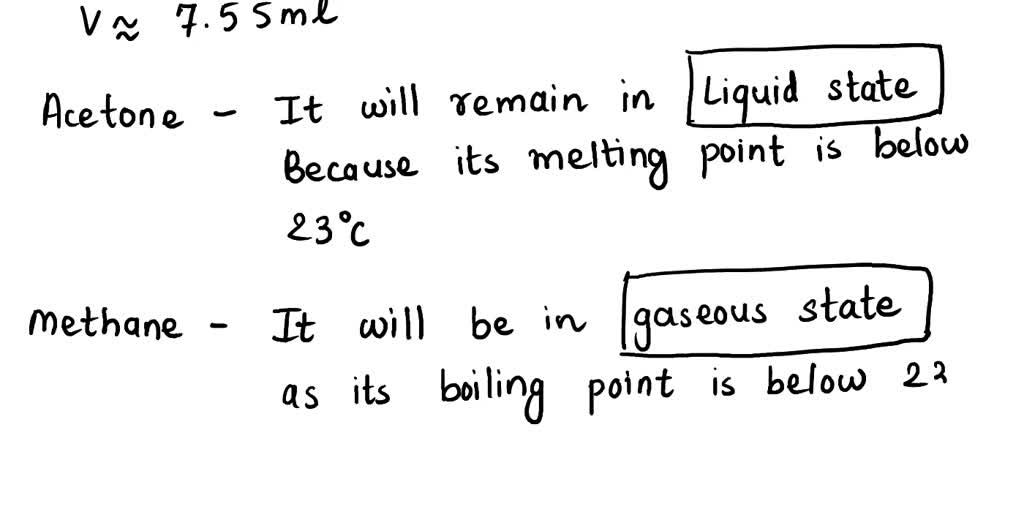 V ≈ 7.55ml
Acetone - It will remain in Liquid state
Because its melting point is below
23°C
Methane - It will be in gaseous state
as its boiling point is below 23